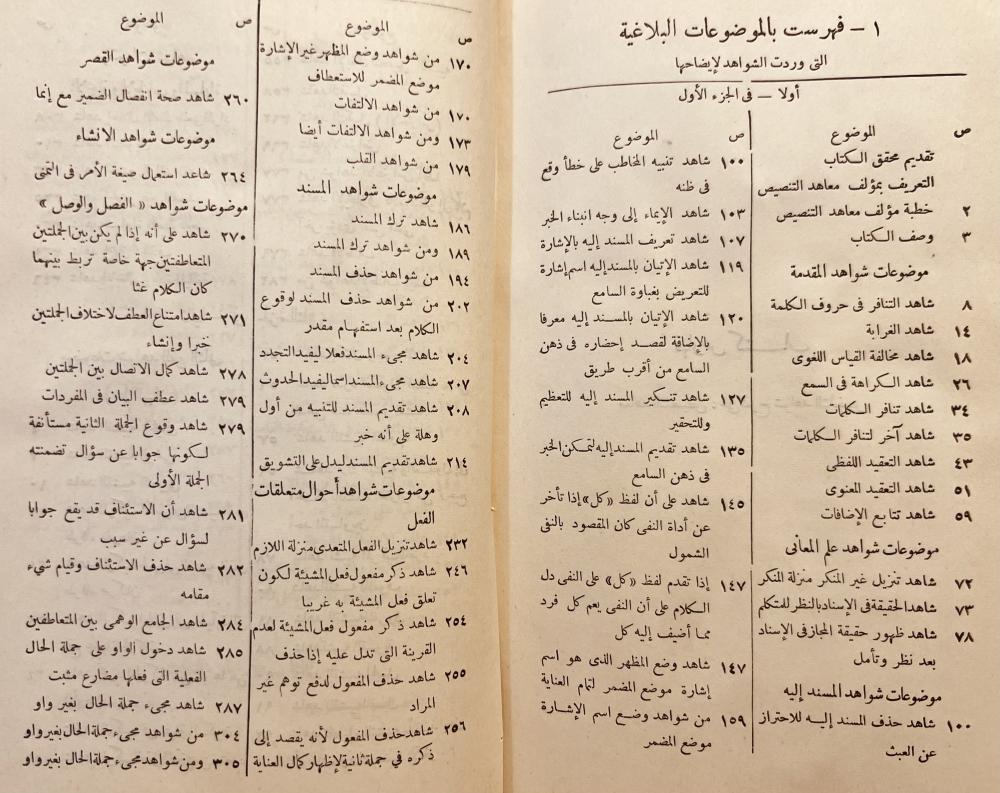 ١ – فهرست بالموضوعات البلاغية
التى وردت الشواهد لإيضاحها
أولا – فى الجزء الأول
ص الموضوع
تقديم محقق الكتاب
التعريف بمؤلف معاهد التنصيص
٢ خطبة مؤلف معاهد التنصيص
٣ وصف الكتاب
موضوعات شواهد المقدمة
٨ شاهد التنافر فى حروف الكلمة
١٤ شاهد الغرابة
١٨ شاهد مخالفة القياس اللغوى
٢٦ شاهد الكراهة فى السمع
٣٤ شاهد تنافر الكلمات
٣٥ شاهد آخر لتنافر الكلمات
٤٣ شاهد التعقيد اللفظى
٥١ شاهد التعقيد المعنوى
٥٩ شاهد تتابع الإضافات
موضوعات شواهد علم المعانى
٧٢ شاهد تنزيل غير المنكر منزلة المنكر
٧٣ شاهد الحقيقة فى الإسناد بالنظر للمتكلم
٧٨ شاهد ظهور حقيقة المجاز فى الإسناد
بعد نظر وتأمل
موضوعات شواهد المسند إليه
١٠٠ شاهد حذف المسند إليه للاحتراز
عن العبث
ص الموضوع
١٠٠ شاهد تنبيه المخاطب على خطأ وقع
فى ظنه
١٠٣ شاهد الإيماء إلى وجه ابتناء الخبر
١٠٧ شاهد تعريف المسند إليه بالإشارة
١١٩ شاهد الإتيان بالمسند إليه اسم إشارة
للتعريض بغباوة السامع
١٢٠ شاهد الإتيان بالمسند إليه معرفا
بالإضافة لقصد إحضاره فى ذهن
السامع من أقرب طريق
١٢٧ شاهد تنكير المسند إليه للتعظيم
وللتحقير
١٣٥ شاهد تقديم المسند إليه لتمكن الخبر
فى ذهن السامع
١٤٥ شاهد على أن لفظ «كل» إذا تأخر
عن أداة النفى كان المقصود بالنفى
الشمول
١٤٧ إذا تقدم لفظ «كل» على النفى دل
الكلام على أن النفى يعم كل فرد
مما أضيف إليه كل
١٤٧ شاهد وضع المظهر الذى هو اسم
إشارة موضع المضمر لتمام العناية
١٥٩ من شواهد وضع اسم الإشارة
موضع المضمر
ص الموضوع
١٧٠ من شواهد وضع المظهر غير الإشارة
موضع المضمر للاستعطاف
١٧٠ من شواهد الالتفات
١٧٣ ومن شواهد الالتفات أيضا
١٧٩ من شواهد القلب
موضوعات شواهد المسند
١٨٦ شاهد ترك المسند
١٨٩ ومن شواهد ترك المسند
١٩٤ من شواهد حذف المسند
٢٠٢ من شواهد حذف المسند لوقوع
الكلام بعد استفهام مقدر
٢٠٤ شاهد مجىء المسند فعلا ليفيد التجدد
٢٠٧ شاهد مجىء المسند اسما ليفيد الحدوث
٢٠٨ شاهد تقديم المسند للتنبيه من أول
وهلة على أنه خبر
٢١٤ شاهد تقديم المسند ليدل على التشويق
موضوعات شواهد أحوال متعلقات
الفعل
٢٣٢ شاهد تنزيل الفعل المتعدى منزلة اللازم
٢٤٦ شاهد ذكر مفعول فعل المشيئة لكون
تعلق فعل المشيئة به غريبا
٢٥٤ شاهد ذكر مفعول فعل المشيئة لعدم
القرينة التى تدل عليه إذا حذف
٢٥٥ شاهد حذف المفعول لدفع توهم غير
المراد
٢٥٦ شاهد حذف المفعول لأنه يقصد إلى
ذكره في جملة ثانية لإظهار كمال العناية
ص الموضوع
موضوعات شواهد القصر
٢٦٠ شاهد صحة انفصال الضمير مع إنما
موضوعات شواهد الانشاء
٢٦٤ شاعد استعمال صيغة الأمر فى التمنى
موضوعات شواهد « الفصل والوصل »
٢٧٠ شاهد على أنه إذا لم يكن بين الجملتين
المتعاطفتين جهة خاصة تربط بينهما
كان الكلام غثا
٢٧١ شاهد امتناع العطف لاختلاف الجملتين
خبرا وإنشاء
٢٧٨ شاهد كمال الاتصال بين الجملتين
٢٧٩ شاهد عطف البيان فى المفردات
٢٧٩ شاهد وقوع الجملة الثانية مستأنفة
لكونها جوابا عن سؤال تضمنته
الجملة الأولى
٢٨١ شاهد أن الاستئناف قد يقع جوابا
لسؤال عن غير سبب
٢٨٢ شاهد حذف الاستئناف وقيام شيء
مقامه
٢٨٤ شاهد الجامع الوهمى بين المتعاطفين
٢٨٥ شاهد دخول الواو على جملة الحال
الفعلية التى فعلها مضارع مثبت
٢٨٧ شاهد مجىء جملة الحال بغير واو
٣٠٤ من شواهد مجىء جملة الحال بغير واو
٣٠٥ ومن شواهد مجىء جملة الحال بغير واو